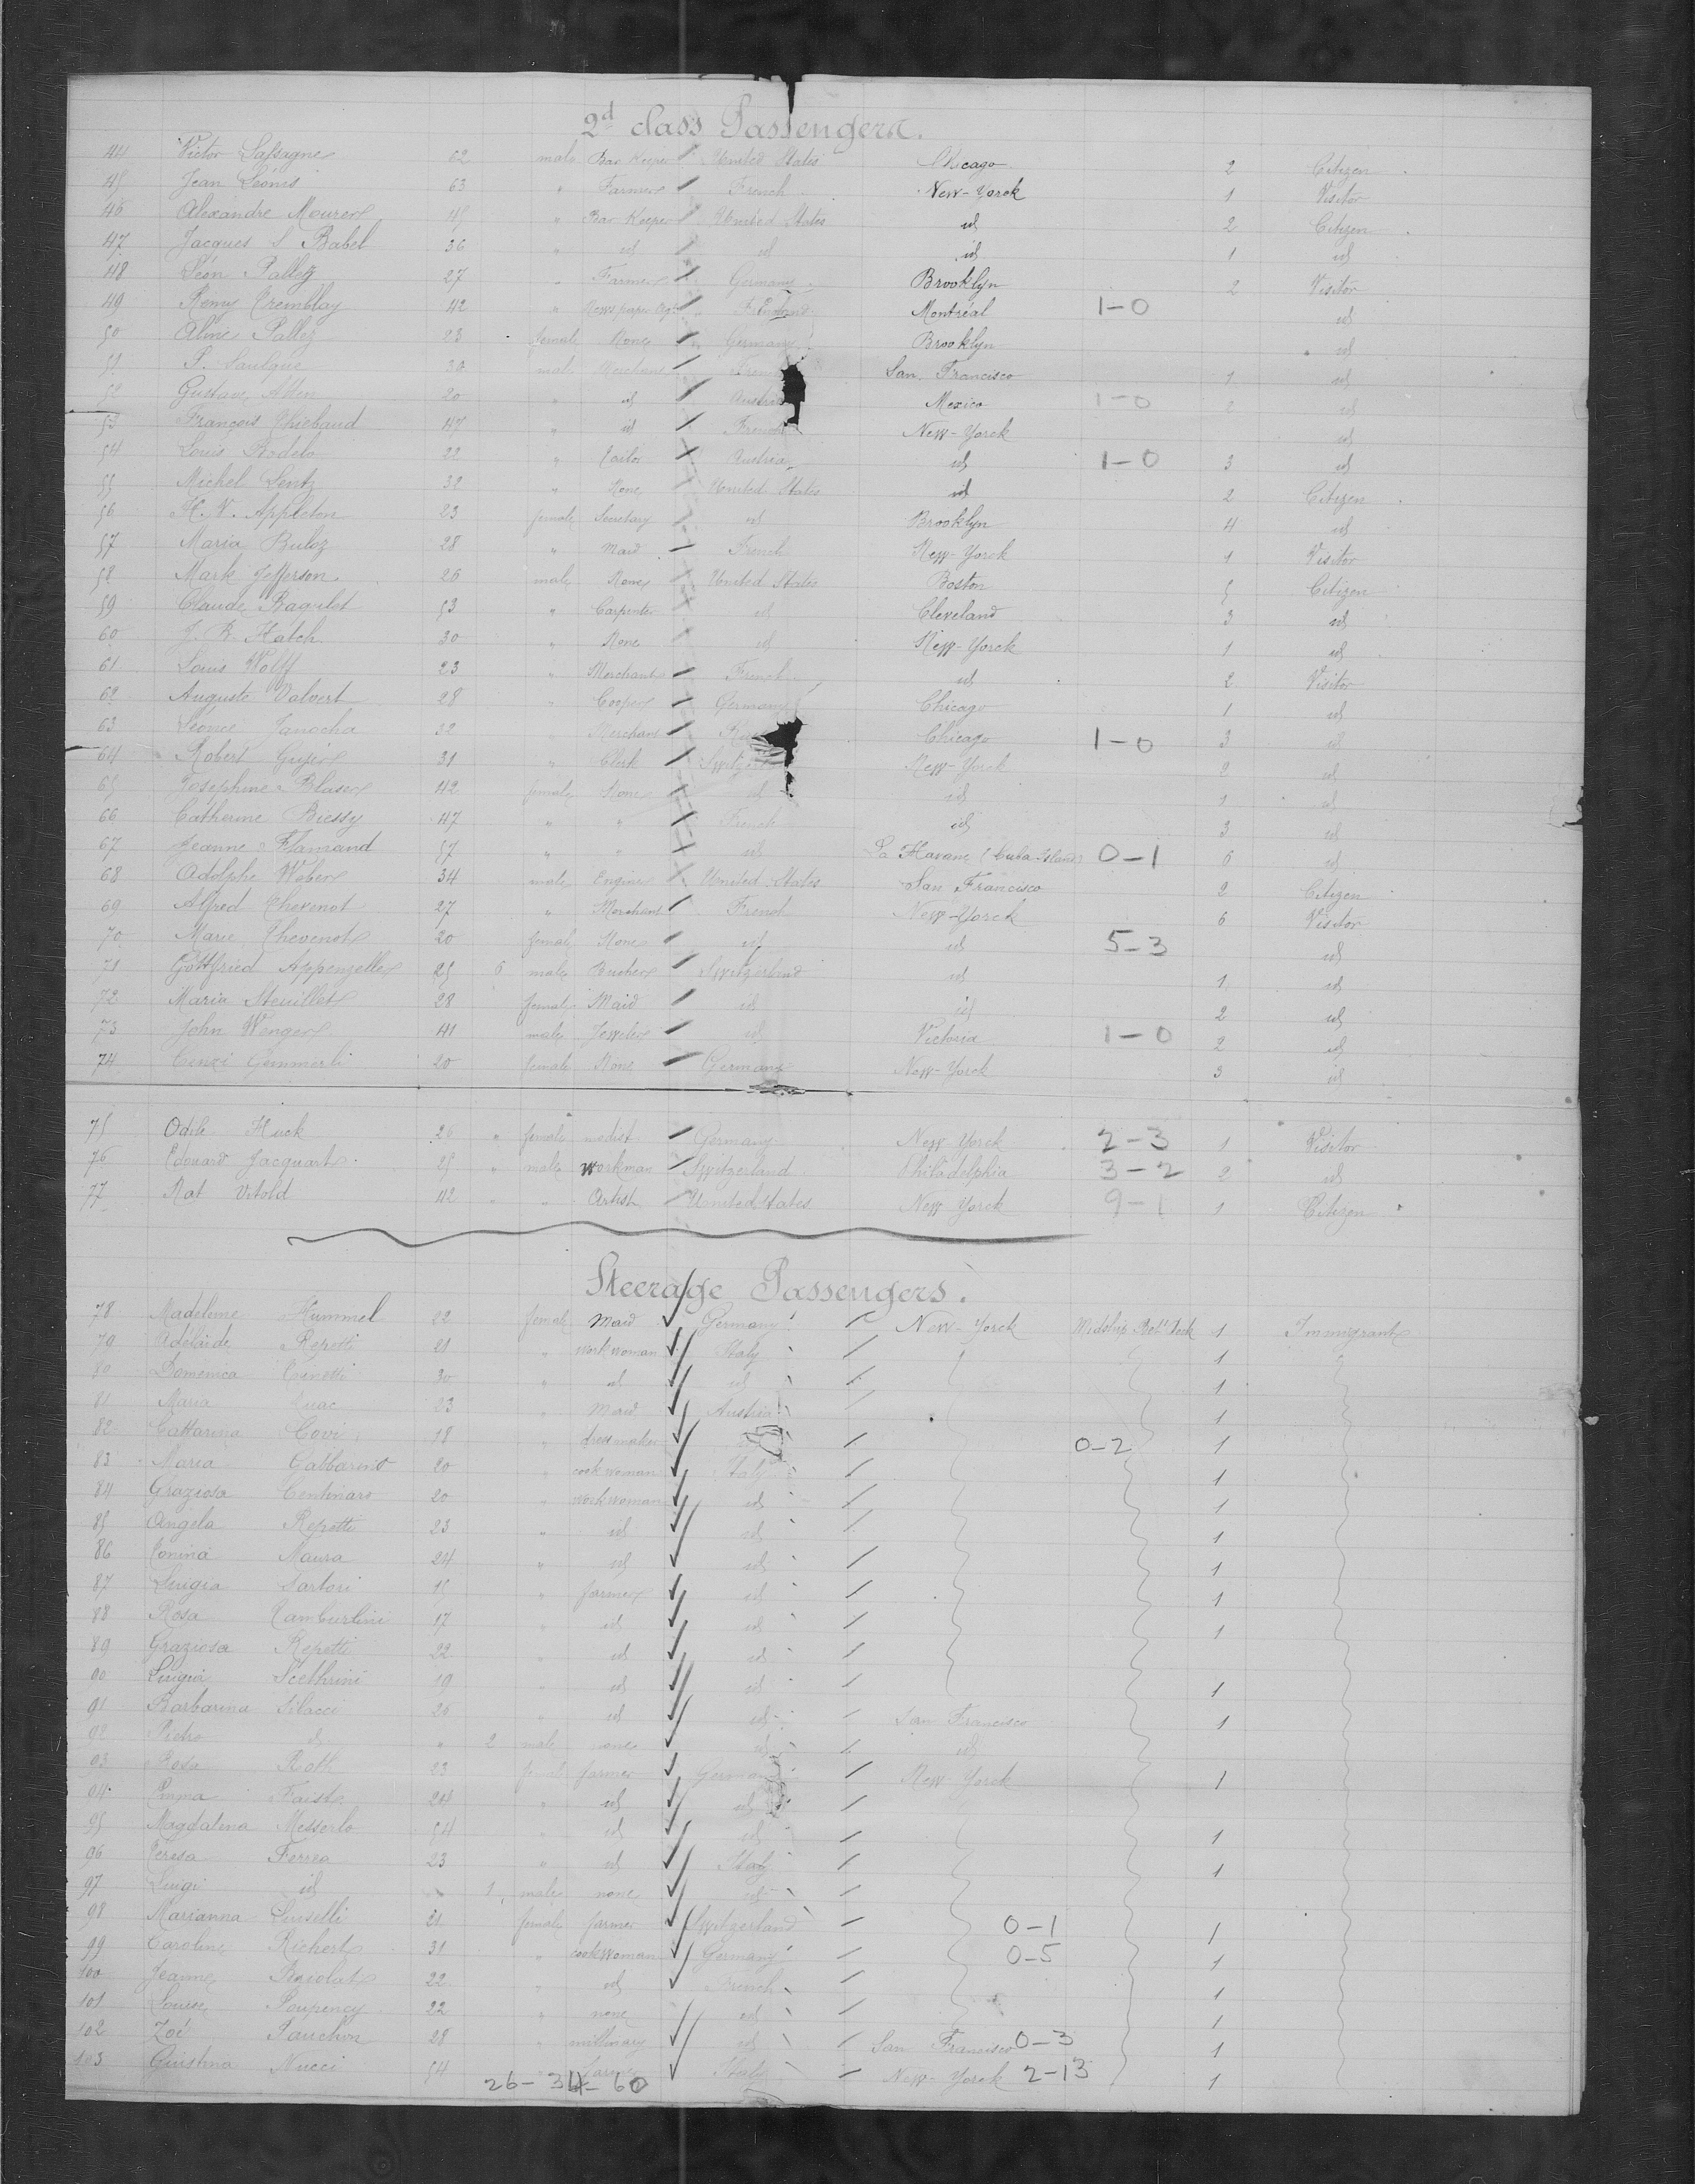 2d class Passengers.
44 Victor Lassagne 62 male Bar Keeper United States Chicago 2 Citizen
45 Jean Léonis 63 " Farmer French New-Yorck 1 Visitor
46 Alexandre Mourer 45 " Bar Keeper United States id 2 Citizen
47 Jacques S Babel 36 " id id id 1 id
48 Léon Pallez 27 " Farmer Germany Brooklyn 2 Visitor
49 Rémy Tremblay 42 " England Montréal 1-0 id
50 Aline Pallez 23 female None Germany Brooklyn id
51 P. Saulque 30 male Merchant French San Francisco 1 id
52 Gustave 20 " id Austria Mexico 1-0 2 id
53 François Thiébaud 47 " id French New-Yorck id
54 Louis Rodels 22 " Tailor Austria id 1-0 3 id
55 Michel Lentz 32 " None United States id 2 Citizen
56 H. V. Appleton 23 female Secretary id Brooklyn 4 id
57 Maria Buloz 28 " Maid French New-Yorck 1 Visitor
58 Mark Jefferson 26 male None United States Boston 5 Citizen
59 Claude Bagulet 53 " Carpenter id Cleveland 3 id
60 J. R. Hatch 30 " None id New-Yorck 1 id
61 Louis Wolff 23 " Merchant French id 2 Visitor
62 Auguste Valvert 28 " Cooper Germany Chicago 1 id
63 Léonce Janocha 32 " Merchant Chicago 1-0 3 id
64 Robert 31 " Clerk New-Yorck 2 id
65 Joséphine Blaser 42 female None id id 1 id
66 Catherine Biessy 47 " " French id 3 id
67 Jeanne Flamand 57 " " id La Havane (Cuba Island) 0-1 6 id
68 Adolphe Weber 34 male Engineer United States San Francisco 2 Citizen
69 Alfred Thevenot 27 " Merchant French New-Yorck 6 Visitor
70 Marie Thevenot 20 female None id id 5-3 id
71 Gottfried Appenzeller 25 6 male Butcher Switzerland id 1 id
72 Maria Steuillet 28 female Maid id id 2 id
73 John Wenger 41 male Jeweler id Victoria 1-0 2 id
74 Cenzi Gemmerli 20 female None Germany New-Yorck 3 id
75 Odile Huck 26 " female modist Germany New Yorck 2-3 1 Visitor
76 Edouard Jacquart 25 " male workman Switzerland Philadelphia 3-2 2 id
77 Rat Vitold 42 " " Artist United States New Yorck 9-1 1 Citizen
Steerage Passengers.
78 Madeleine Hummel 22 female maid Germany New-Yorck Midship Bet' Deck 1 Immigrant
79 Adélaïde Repetti 21 " workwoman Italy 1
80 Domenica 30 " id id 1
81 Maria 23 " maid Austria 1
82 Cattarina Covi 18 " dressmaker 0-2 1
83 Maria Gabbarino 20 " cookwoman Italy 1
84 Graziosa Centinaro 20 " workwoman id 1
85 Angela Repetti 23 " id id 1
86 Tonina Maura 24 " id id 1
87 Luigia Sartori 15 " farmer id 1
88 Rosa Tamburlini 17 " id id 1
89 Graziosa Repetti 22 " id id
90 Luigia 19 " id id 1
91 Barbarina Silacci 26 " id id San Francisco 1
92 Pietro id " 2 male none id id
93 Rosa Roth 23 female farmer Germany New-Yorck 1
94 Emma Faist 24 " id id
95 Magdalena Messerlo 54 " id id 1
96 Teresa Ferrea 23 " id Italy 1
97 Luigi id 1 male none id
98 Marianna 21 female farmer Switzerland 0-1 1
99 Caroline Richert 31 " cookwoman Germany 0-5 1
100 Jeanne Briolat 22 " id French 1
101 Louise Poupency 22 " none id 1
102 Zoé Pauchon 28 " millinary id San Francisco 0-3 1
103 Nucci 54 " Italy New-Yorck 2-13 1
26-34-60